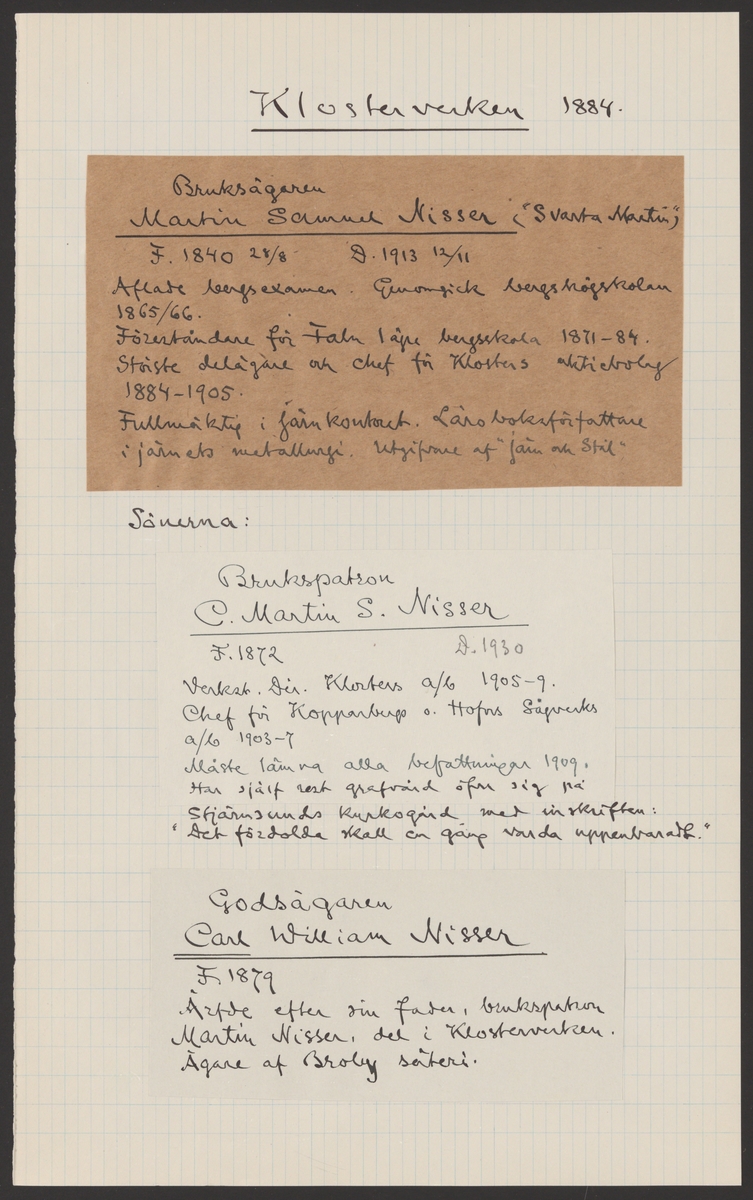 Klosterverken 1884.
Bruksägaren
Martin Samuel Nisser ("Svarta Martin")
F. 1840 28/8 D. 1913 12/11
Aflade bergsexamen. Genomgick bergshögskolan
1865/66.
Föreståndare för Falu lägre bergsskola 1871-84.
Störste delägare och chef för Klosters aktiebolag
1884-1905.
Fullmäktig i järnkontoret. Läroboksförfattare
i järnets metallurgi. Utgifvare af "Järn och Stål"
Sönerna:
Brukspatron
C. Martin S. Nisser
F. 1872 D. 1930
Verkst. Dir. Klosters a/b 1905-9.
Chef för Kopparbergs o. Hofors Sågverks
a/b 1903-7
Måste lämna alla befattningar 1909.
Har själf rest grafvård öfver sig på
Stjärnsunds kyrkogård med inskriften:
"Det fördolda skall en gång varda uppenbaradt."
Godsägaren
Carl William Nisser
F. 1879
Ärfde efter sin fader, brukspatron
Martin Nisser, del i Klosterverken.
Ägare af Broby säteri.